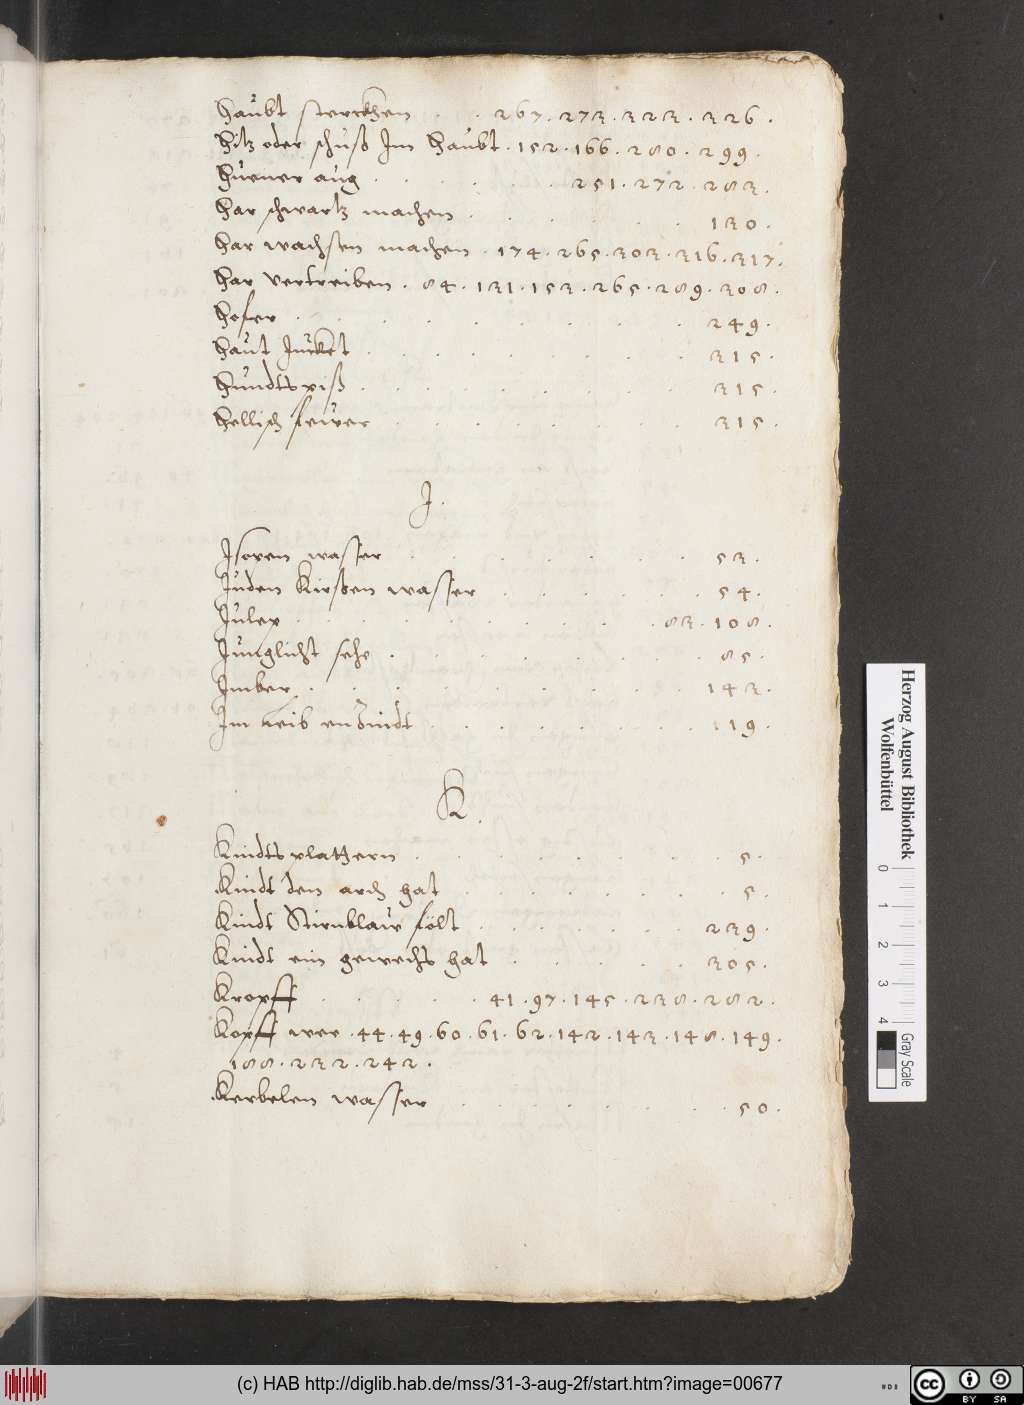 Haubt sterckhen . . 267 . 273 . 323 . 326 .
Hitz oder schuß Im Haubt . 152 . 166 . 280 . 299 .
Huener aug . . . . . . 251 . 272 . 283 .
Har schwartz machen . . . . . . 130 .
Har wachsen machen . 174 . 265 . 303 . 316 . 317 .
Har vertreiben . 84 . 131 . 153 . 265 . 289 . 308 .
Hofer . . . . . . . . . . 249 .
Haut Juckht . . . . . . . . . 315 .
Hundtspiß . . . . . . . . . 315 .
Hellisch feiver . . . . . . . . 315 .
J .
Isopen wasser . . . . . . . 53 .
Juden Kirßen wasser . . . . . . 54 .
Julep . . . . . . . . . 83 . 108 .
Junglicht sehe . . . . . . . . 85 .
Imber . . . . . . . . . . 143 .
Im leib enzindt . . . . . . . 119 .
K .
Kindtsplatzern . . . . . . . . 5 .
Kindt den arch hat . . . . . . . 5 .
Kindt Stirnblaw fölt . . . . . . 239 .
Kindt ein gewechs hat . . . . . 305 .
Kropff . . . . . 41 . 97 . 145 . 238 . 282 .
Kopff wee . 44 . 49 . 60 . 61 . 62 . 142 . 143 . 148 . 149 .
188 . 232 . 242 .
Kerbelen wasser . . . . . . . . 50 .
Herzog August Bibliothek
Wolfenbüttel
0 1 2 3 4
Gray Scale
(c) HAB http://diglib.hab.de/mss/31-3-aug-2f/start.htm?image=00677
cc BY SA